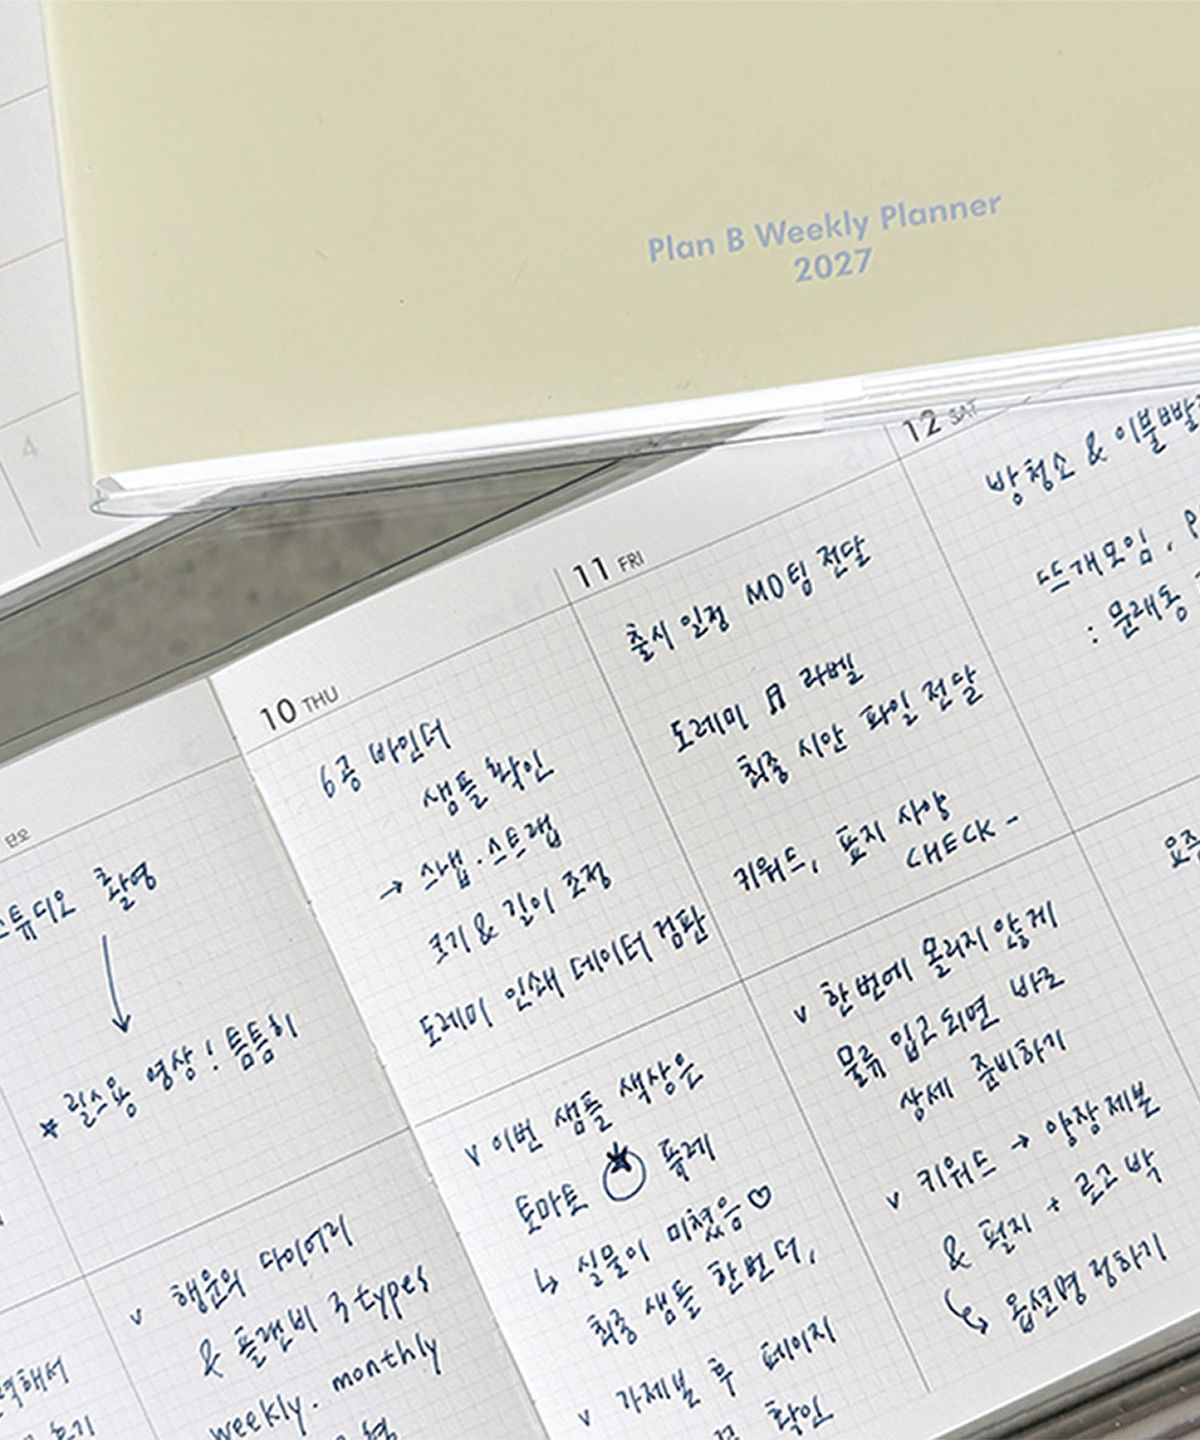 Plan B Weekly Planner
2027
4
단오
스튜디오 촬영
릴스용 영상! 틈틈히
v 행운의 다이어리
& 플랜비 3 types
weekly. monthly
10 THU
6공 바인더
샘플 확인
→ 스냅. 스트랩
크기 & 길이 조정
도레미 인쇄 데이터 검판
v 이번 샘플 색상은
토마토 퓨레
↳ 실물이 미쳤음♡
최종 샘플 한번 더,
v 가제본 후 페이지
확인
11 FRI
출시 일정 MD팀 전달
도레미 라벨
최종 시안 파일 전달
키워드, 표지 사양
CHECK -
v 한번에 몰리지 않게
물류 입고되면 바로
상세 준비하기
v 키워드 → 양장제본
& 펄지 + 로고 박
옵션명 정하기
12 SAT
방청소 & 이불빨
뜨개모임,
: 문래동